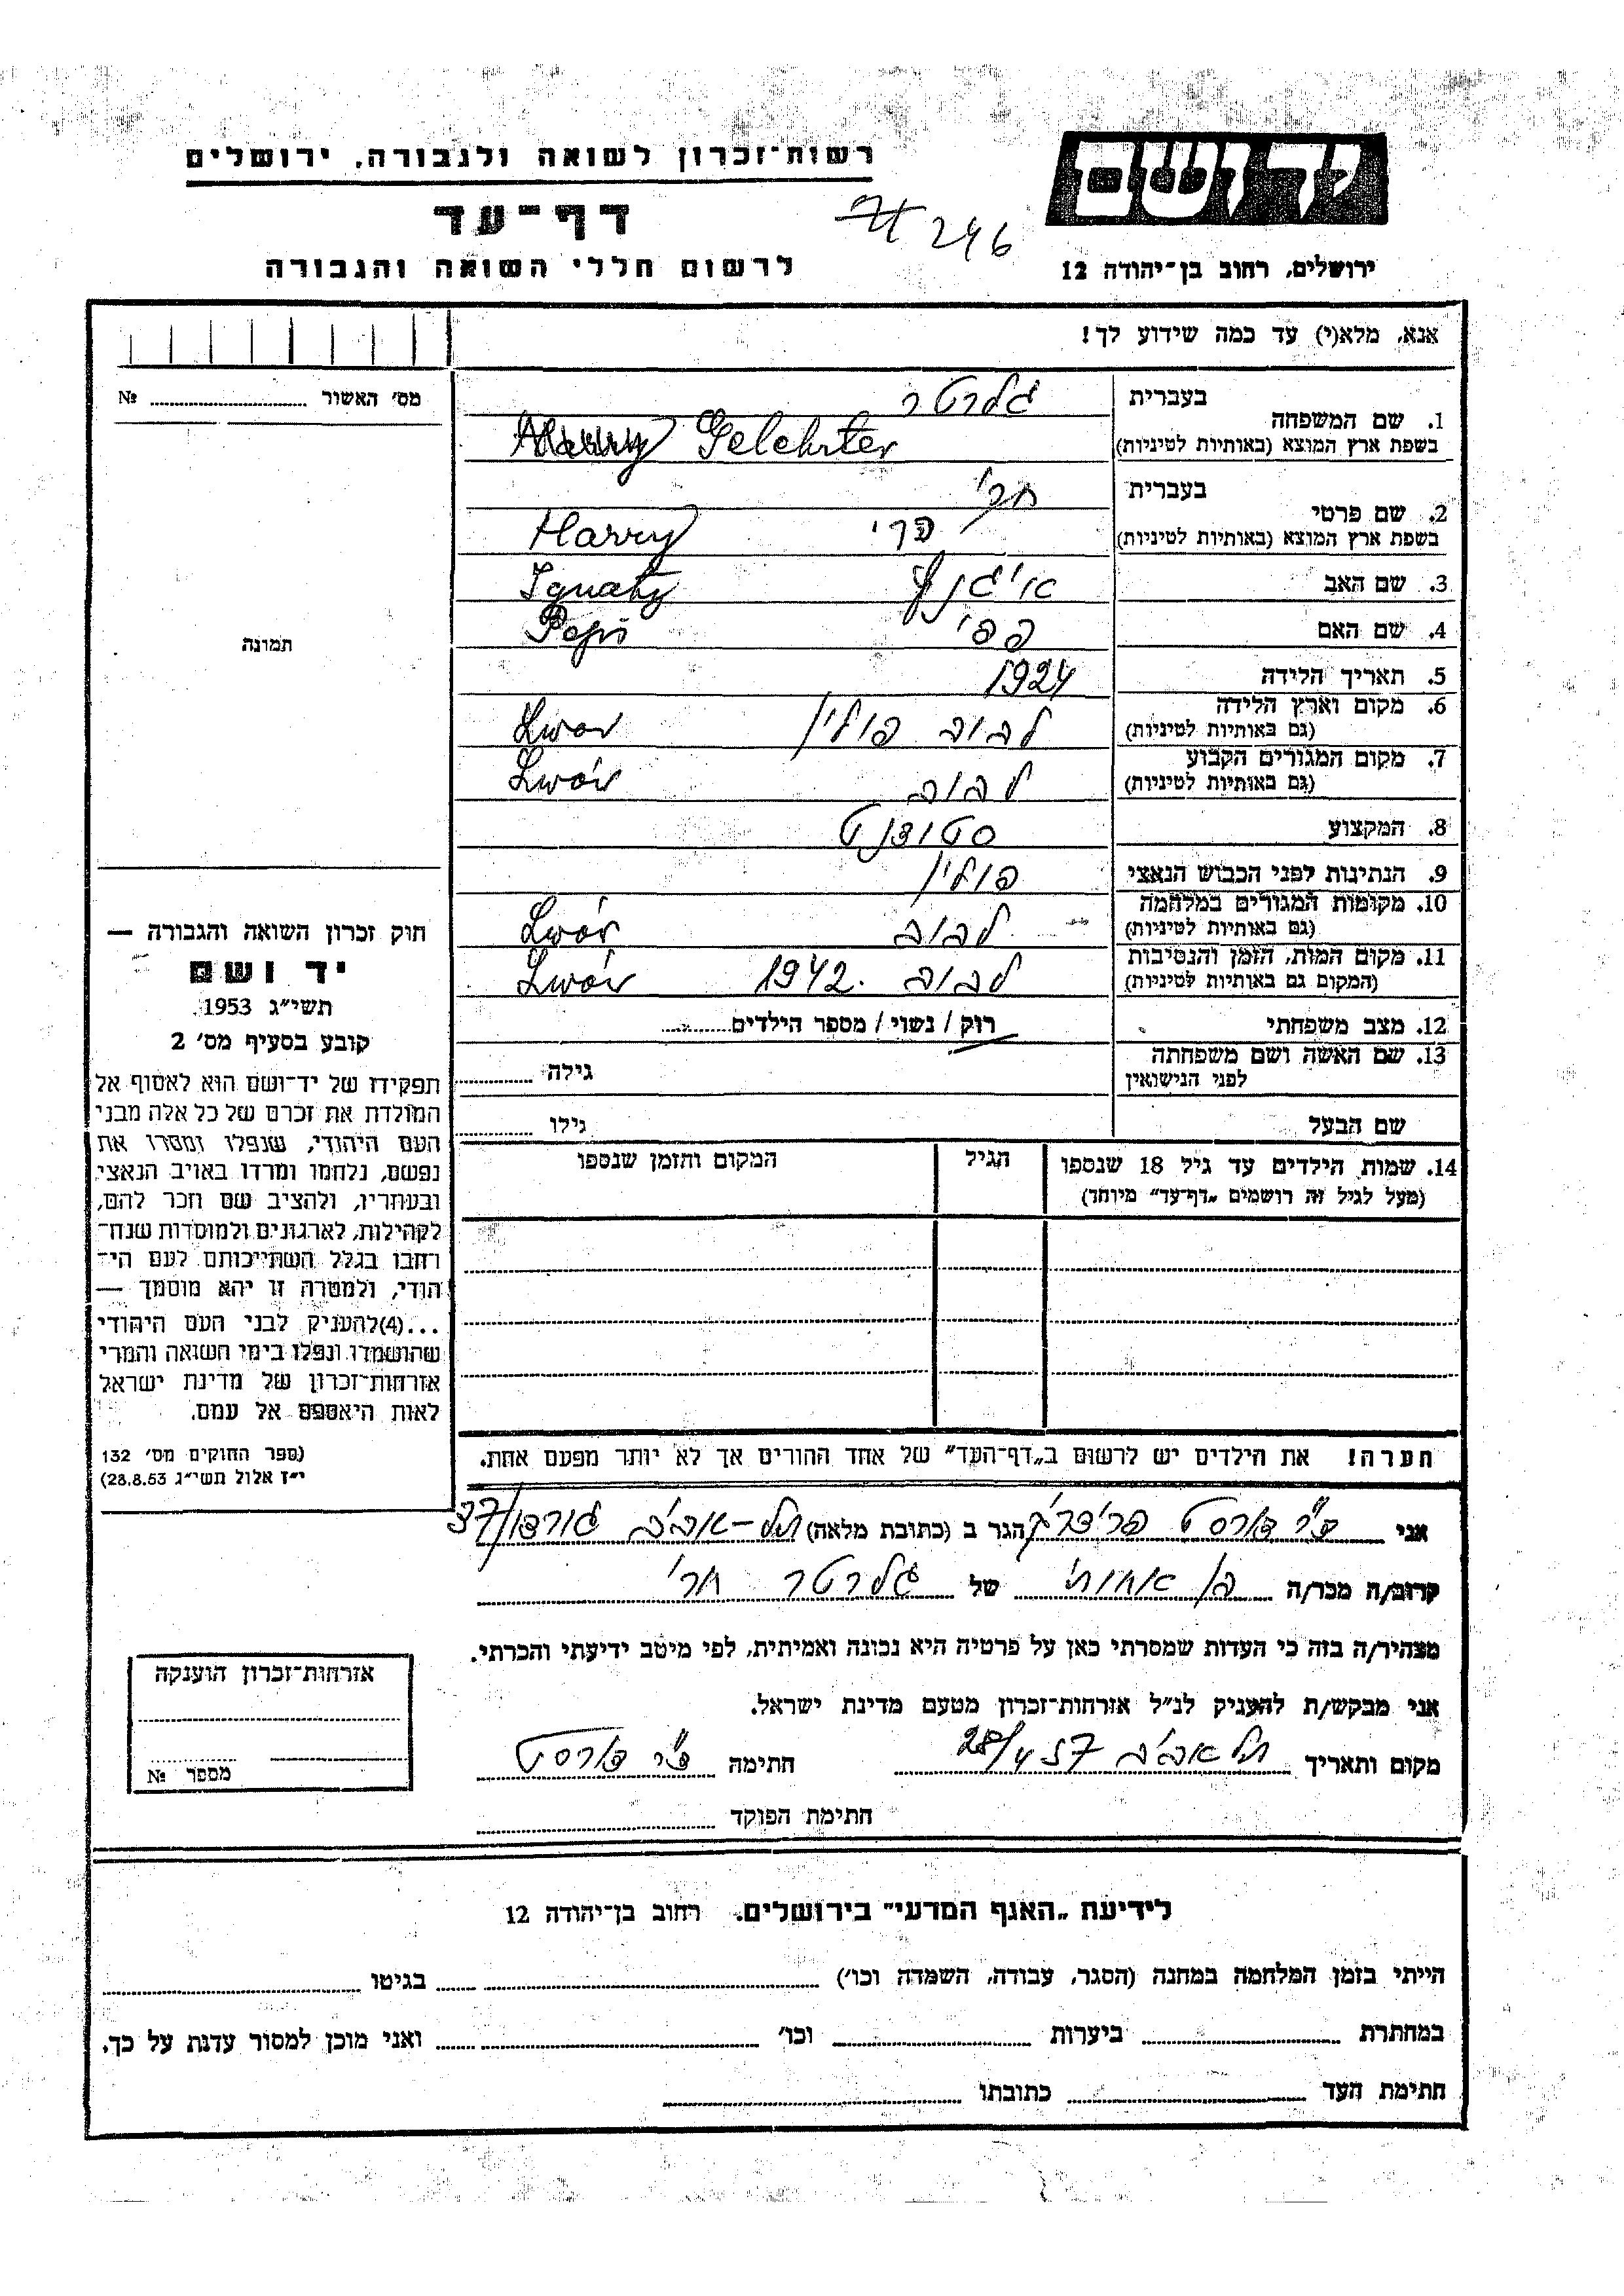 רשות־זכרון לשואה ולגבורה, ירושלים
יד ושם
דף־עד
246
לרשום חללי השואה והגבורה
ירושלים, רחוב בן־יהודה 12
אנא, מלא(י) עד כמה שידוע לך!
מס׳ האשור № 
תמונה
1. שם המשפחה
בעברית גלרטר
בשפת ארץ המוצא (באותיות לטיניות) Gelehrter
2. שם פרטי
בעברית הרי
בשפת ארץ המוצא (באותיות לטיניות) Harry
3. שם האב Ignatz
4. שם האם פפי Pepi
5. תאריך הלידה 1924
6. מקום וארץ הלידה לבוב פולין Lwow
(גם באותיות לטיניות)
7. מקום המגורים הקבוע לבוב Lwów
(גם באותיות לטיניות)
8. המקצוע סטודנט
9. הנתינות לפני הכבוש הנאצי פולין
10. מקומות המגורים במלחמה לבוב Lwów
(גם באותיות לטיניות)
11. מקום המות, הזמן והנסיבות לבוב 1942. Lwów
(המקום גם באותיות לטיניות)
12. מצב משפחתי רווק / נשוי / מספר הילדים
13. שם האשה ושם משפחתה גילה
לפני הנישואין
שם הבעל גילו
14. שמות הילדים עד גיל 18 שנספו הגיל המקום והזמן שנספו
(מעל לגיל זה רושמים „דף־עד” מיוחד)
חוק זכרון השואה והגבורה —
יד ושם
תשי״ג 1953
קובע בסעיף מס׳ 2
תפקידו של יד־ושם הוא לאסוף אל
המולדת את זכרם של כל אלה מבני
העם היהודי, שנפלו ומסרו את
נפשם, נלחמו ומרדו באויב הנאצי
ובעוזריו, ולהציב שם וזכר להם,
לקהילות, לארגונים ולמוסדות שנח־
רבו בגלל השתייכותם לעם הי־
הודי, ולמטרה זו יהא מוסמך —
...(4)להעניק לבני העם היהודי
שהושמדו ונפלו בימי השואה והמרי
אזרחות־זכרון של מדינת ישראל
לאות היאספם אל עמם.
(ספר החוקים מס׳ 132
י״ז אלול תשי״ג 28.8.53)
הערה! את הילדים יש לרשום ב„דף־העד” של אחד ההורים אך לא יותר מפעם אחת.
אני הגר ב (כתובת מלאה) תל-אביב גורדון 37
קרוב/ה מכר/ה בן אחות של גלרטר הרי
מצהיר/ה בזה כי העדות שמסרתי כאן על פרטיה היא נכונה ואמיתית, לפי מיטב ידיעתי והכרתי.
אני מבקש/ת להעניק לנ״ל אזרחות־זכרון מטעם מדינת ישראל.
מקום ותאריך תל אביב 28/4 57 חתימה
חתימת הפוקד
אזרחות־זכרון הוענקה
מספר №
לידיעת „האגף המדעי” בירושלים. רחוב בן־יהודה 12
הייתי בזמן המלחמה במחנה (הסגר, עבודה, השמדה וכו׳) בגיטו
במחתרת ביערות וכו׳ ואני מוכן למסור עדות על כך.
חתימת העד כתובתו